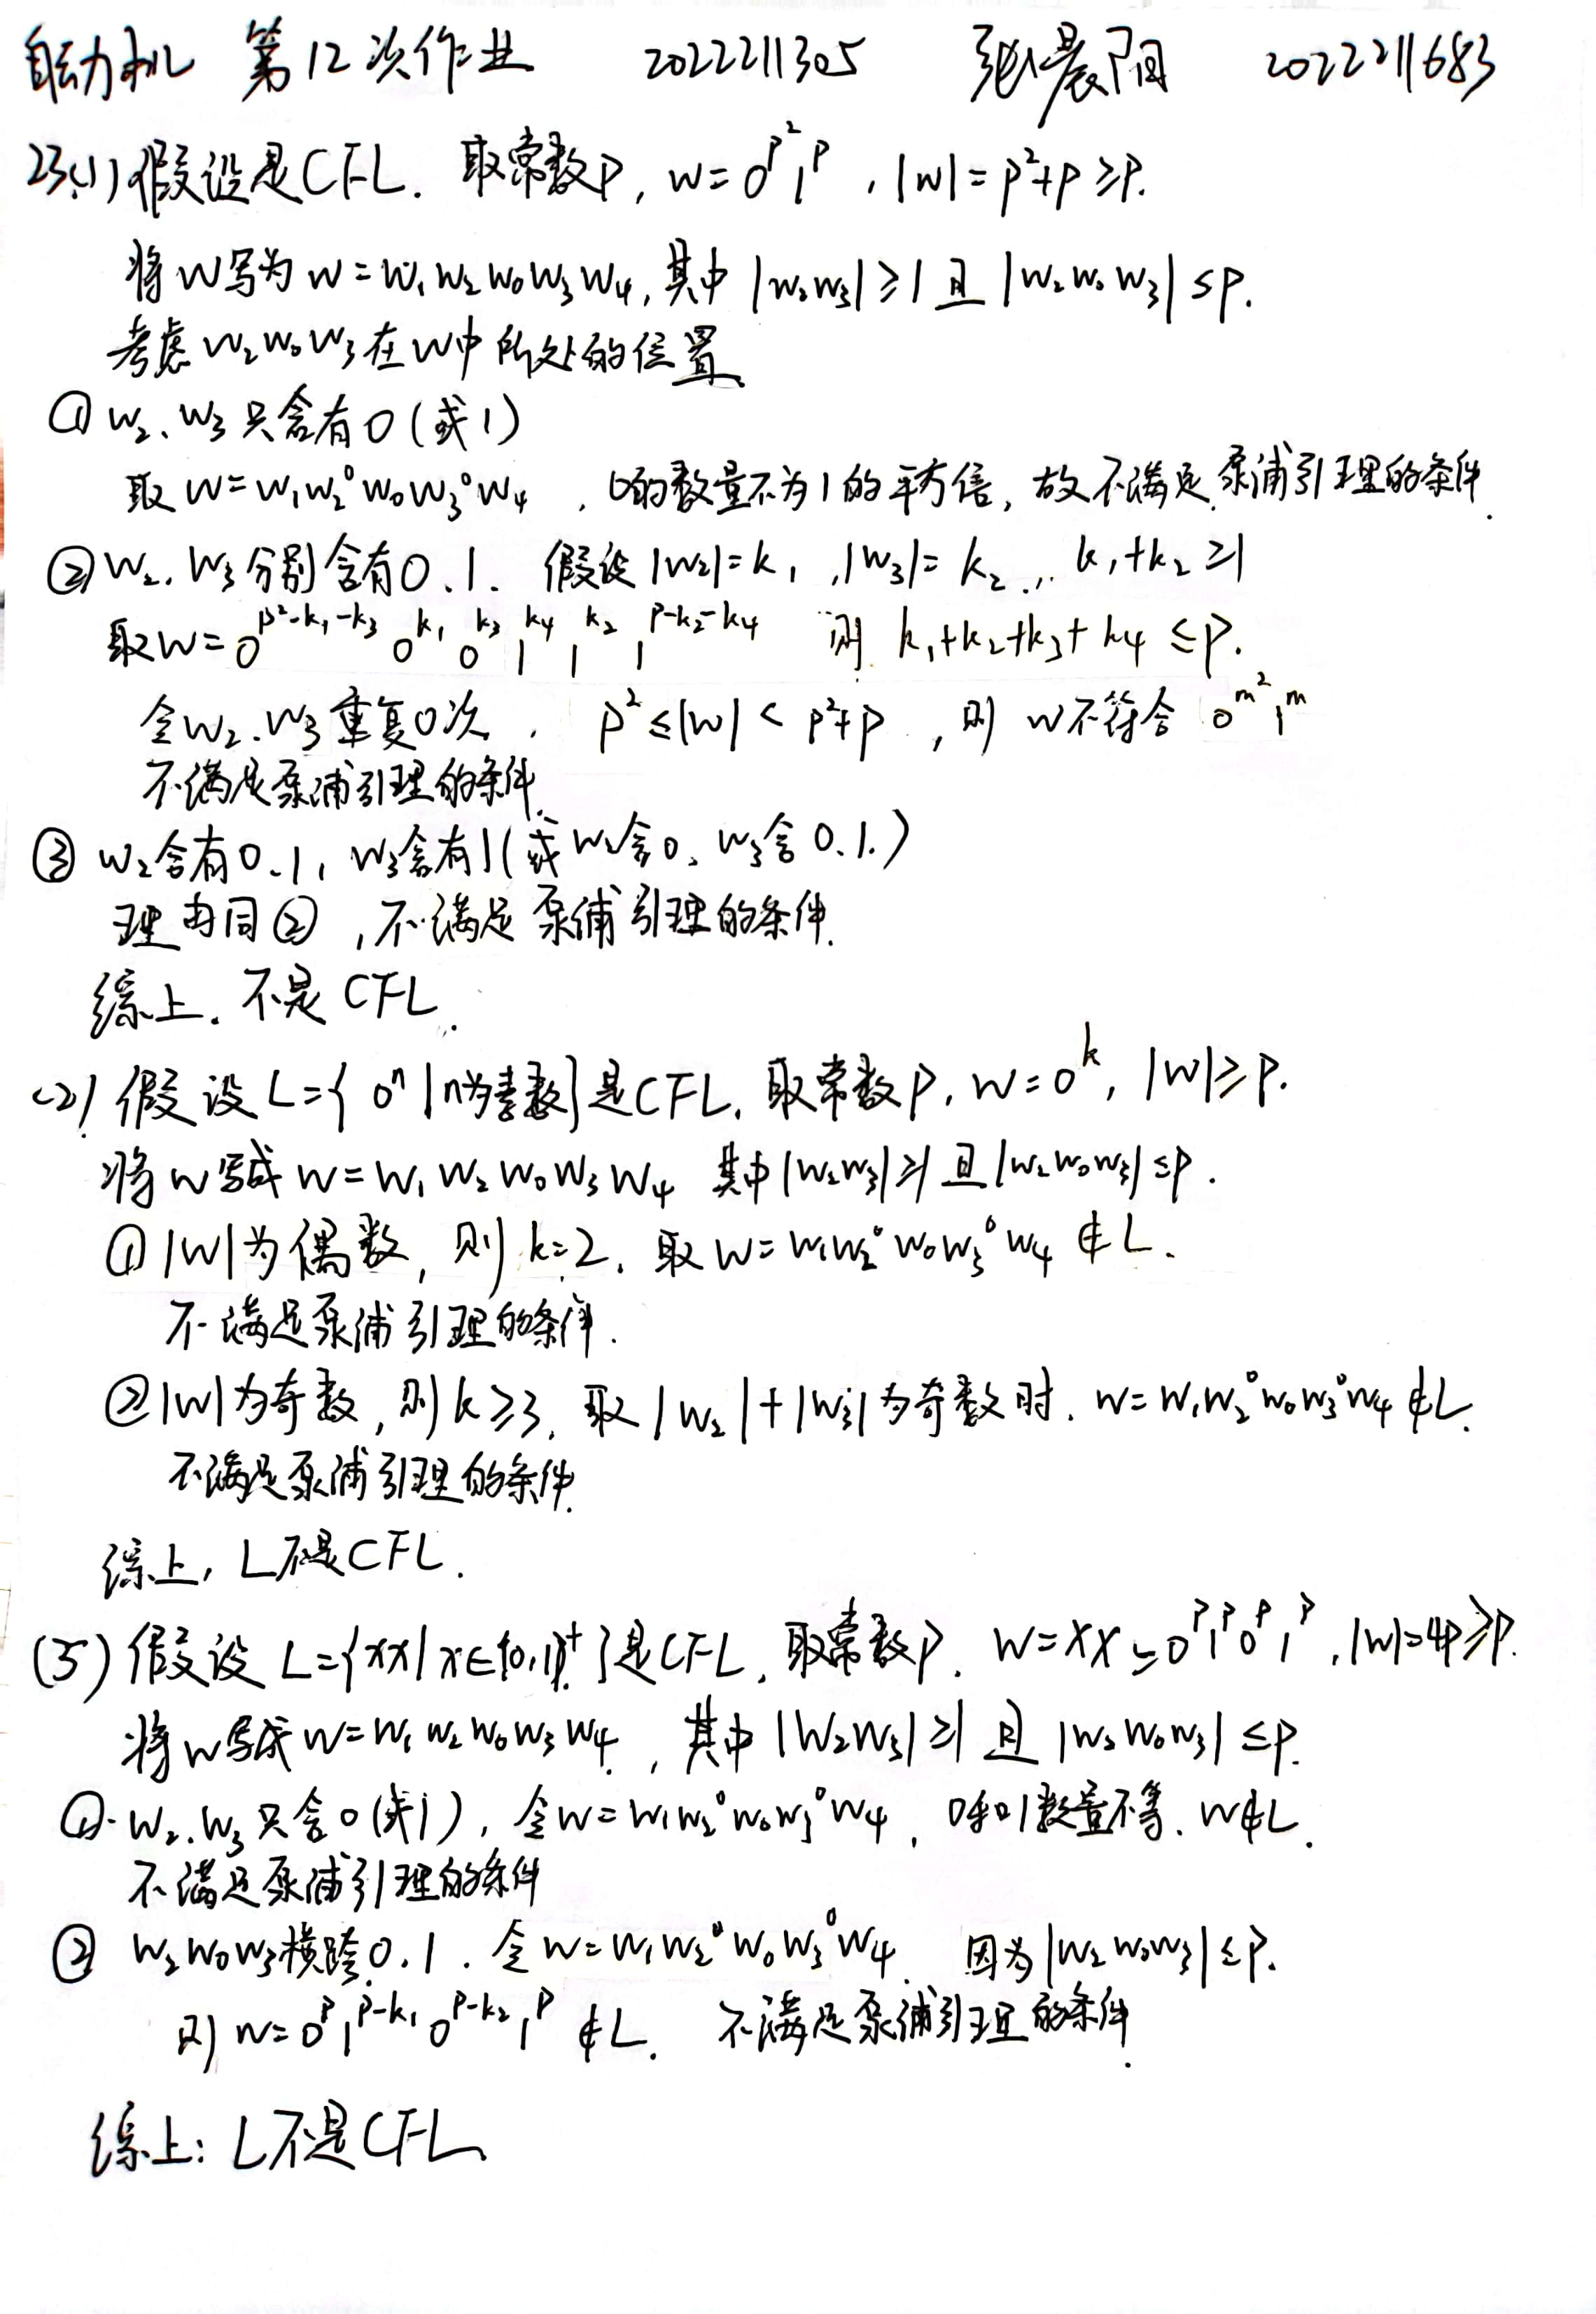 自动机 第12次作业 2022211305 张晨阳 2022211683
23.(1)假设是CFL. 取常数P, w=0^{p^2}1^p, |w|=p^2+p≥P.
将w写为w=w₁w₂w₀w₃w₄,其中|w₂w₃|≥1且|w₂w₀w₃|≤P.
考虑w₂w₀w₃在w中所处的位置
① w₂、w₃只含有0(或1)
取w=w₁w₂⁰w₀w₃⁰w₄, 0的数量不为1的平方倍, 故不满足泵浦引理的条件.
② w₂.w₃分别含有0.1. 假设|w₂|=k₁,|w₃|=k₂, k₁+k₂≥1
取w=0^{p^2-k₁-k₃} 0^{k₁} 0^{k₃} 1^{k₄} 1^{k₂} 1^{p-k₂-k₄} 则 k₁+k₂+k₃+k₄≤P.
令w₂.w₃重复0次, p^2≤|w|<p^2+p, 则w不符合 0^{m^2}1^m
不满足泵浦引理的条件.
③ w₂含有0.1, w₃含有1(或w₂含0、w₃含0.1.)
理由同②,不满足泵浦引理的条件.
综上.不是CFL.
(2) 假设L={0ⁿ|n为素数}是CFL, 取常数P, w=0^k, |w|≥P.
将w写成w=w₁w₂w₀w₃w₄ 其中|w₂w₃|≥1且|w₂w₀w₃|≤P.
①|w|为偶数, 则k=2. 取w=w₁w₂⁰w₀w₃⁰w₄∉L.
不满足泵浦引理的条件.
②|w|为奇数,则k≥3, 取|w₂|+|w₃|为奇数时. w=w₁w₂⁰w₀w₃⁰w₄∉L.
不满足泵浦引理的条件.
综上, L不是CFL.
(5) 假设L={xx|x∈{0,1}⁺}是CFL, 取常数P. w=xx=0^p1^p0^p1^p, |w|=4P≥P.
将w写成w=w₁w₂w₀w₃w₄, 其中|w₂w₃|≥1且|w₂w₀w₃|≤P.
①.w₂.w₃只含0(或1), 令w=w₁w₂⁰w₀w₃⁰w₄, 0和1数量不等. w∉L.
不满足泵浦引理的条件
② w₂w₀w₃横跨0.1. 令w=w₁w₂⁰w₀w₃⁰w₄. 因为|w₂w₀w₃|≤P.
则w=0^p1^{p-k₁}0^{p-k₂}1^p∉L. 不满足泵浦引理的条件.
综上: L不是CFL.